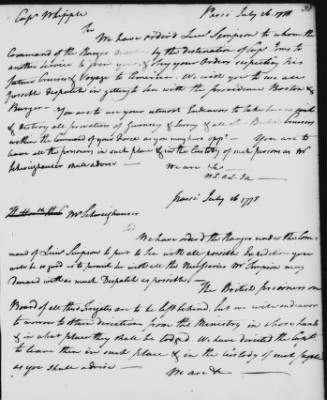 Capt Whipple Passi July 16 1778
Sir
We have ordered Lieu Simpson to whom the
Command of the Ranger by the destination of Capt Jones to
another Service to join you & obey your Orders respecting his
future Cruises & Voyage to America. We wish you to use all
possible dispatch in getting to Sea with the providence Boston &
Ranger. You are to use your utmost Endeavor to take
& destroy all privateers of Guernsey & Jersey & all British Cruisers
within the Command of your Force as you may have oppy. You are to
leave all the prisoners in such place & in the Custody of such persons as Mr
Schweighauser shall advise
We are &c
Passi July 16 1778
Mr Schweighauser
Sir
We have ordered the Ranger under the Com
mand of Lieu Simpson to put to Sea with all possible
as to provide her with all the Necessaries Mr Simpson may
Demand with as much Dispatch as possible.
The British prisoners on
Board of all this Frigates are to be left behind, but we will endeavor
to have directions from the Ministry in whose hands
& in what place they shall be lodged We have directed the Capts
to leave them in such place & in the custody of such people
as you shall advise
We are &